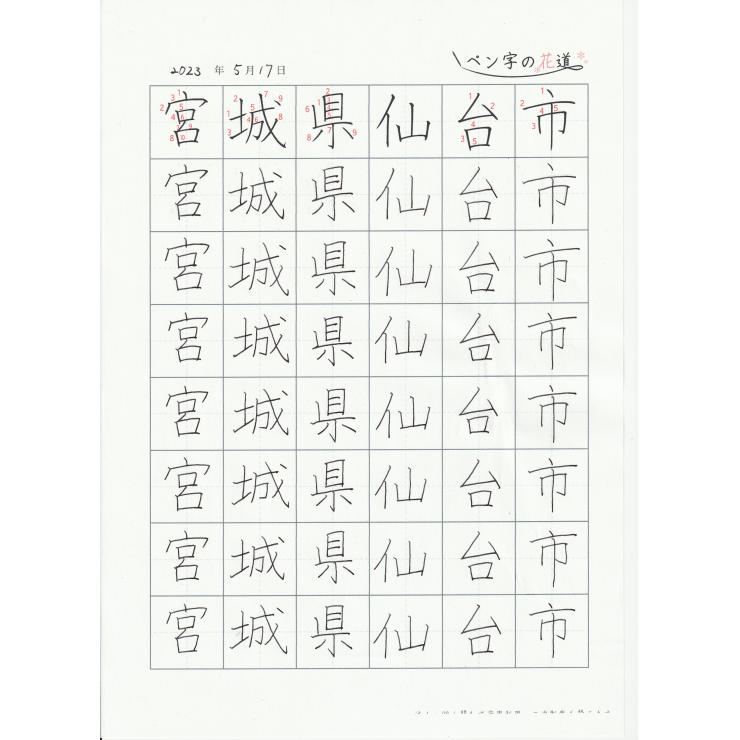 2023 年 5月17日
ペン字の花道
宮城県仙台市
宮城県仙台市
宮城県仙台市
宮城県仙台市
宮城県仙台市
宮城県仙台市
宮城県仙台市
宮城県仙台市